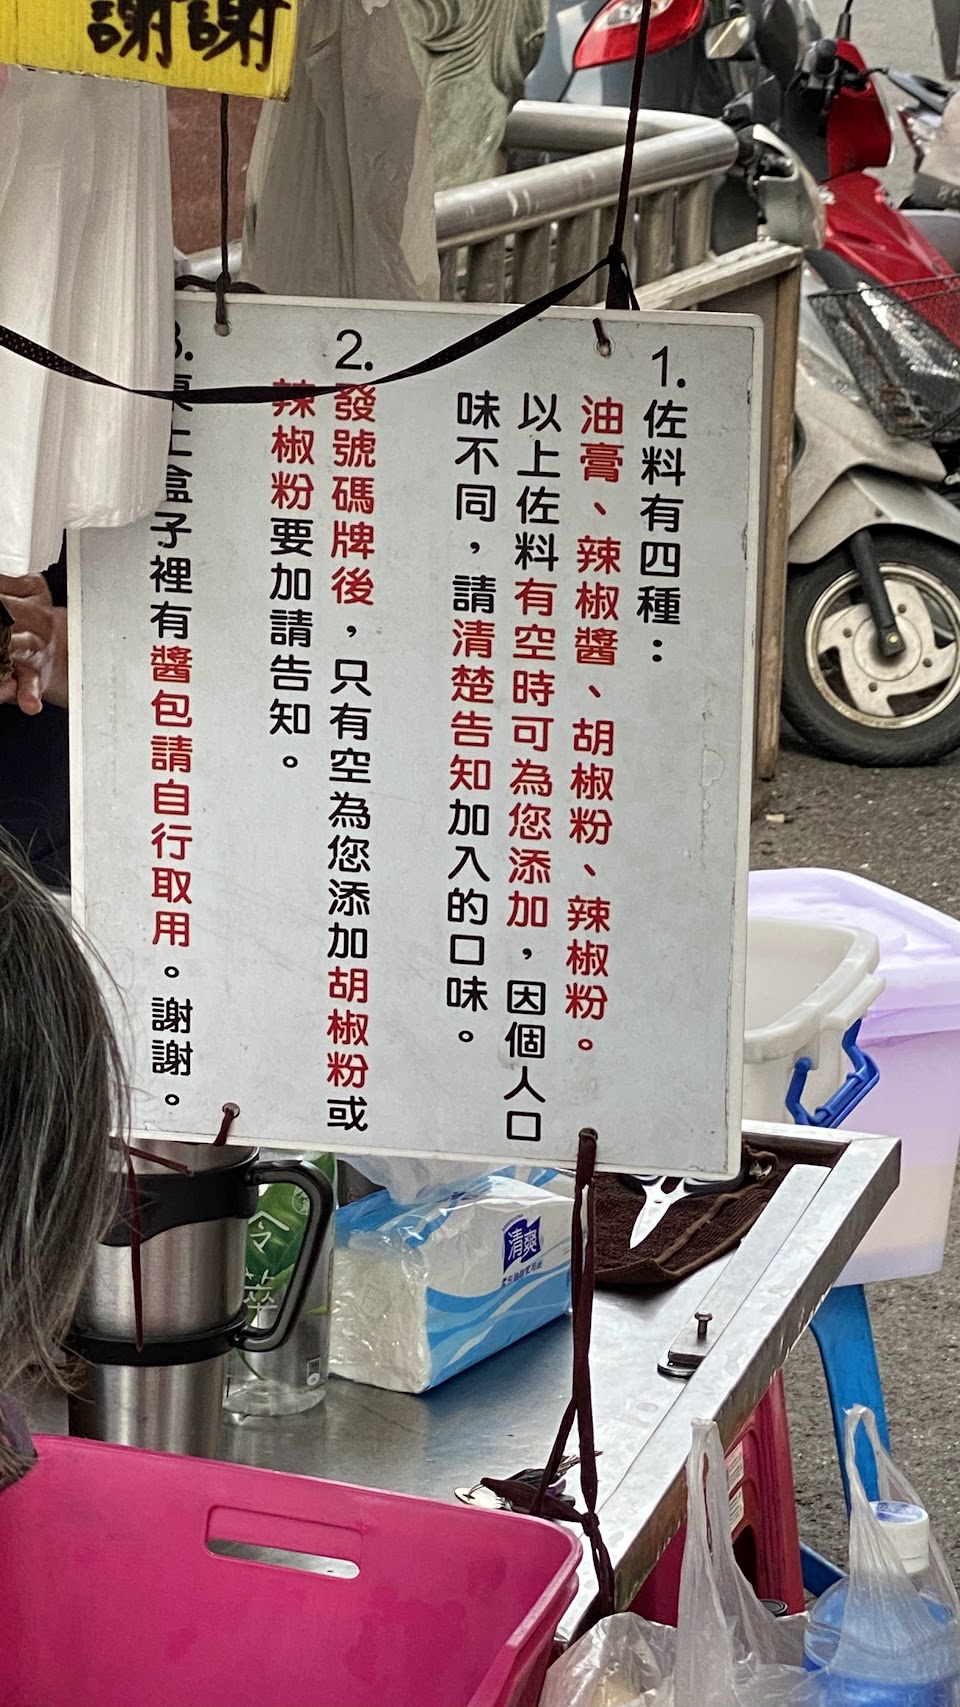 謝謝
1.佐料有四種：
油膏、辣椒醬、胡椒粉、辣椒粉。
以上佐料有空時可為您添加，因個人口
味不同，請清楚告知加入的口味。
2.發號碼牌後，只有空為您添加胡椒粉或
辣椒粉要加請告知。
3.桌上盒子裡有醬包請自行取用。謝謝。
清爽
冷萃